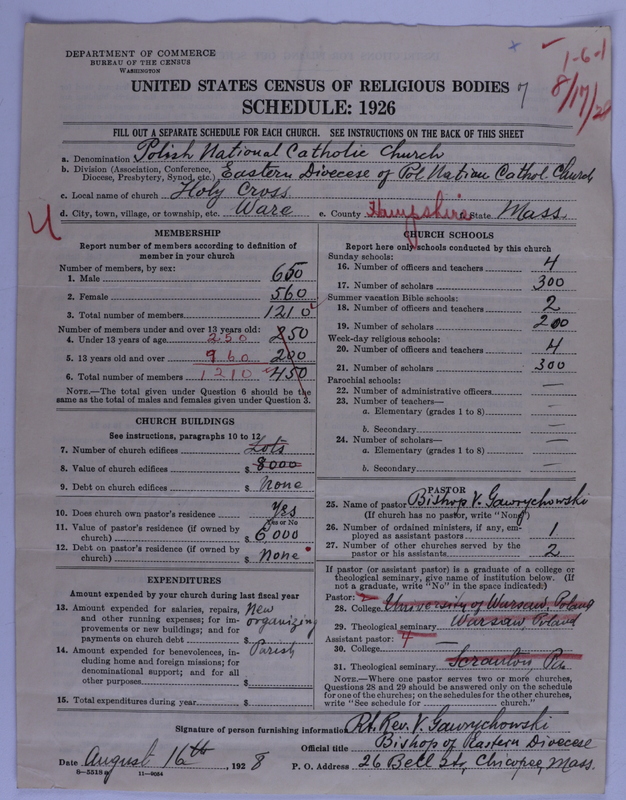 DEPARTMENT OF COMMERCE
BUREAU OF THE CENSUS
WASHINGTON
1-6-1
8/17/28
UNITED STATES CENSUS OF RELIGIOUS BODIES 7
SCHEDULE: 1926
FILL OUT A SEPARATE SCHEDULE FOR EACH CHURCH. SEE INSTRUCTIONS ON THE BACK OF THIS SHEET
a. Denomination Polish National Catholic Church
b. Division (Association, Conference, Diocese, Presbytery, Synod, etc.) Eastern Divecese of Pol. Nation. Cathol. Church
c. Local name of church Holy Cross
d. City, town, village, or township, etc. Ware e. County Hampshire State Mass.
MEMBERSHIP
Report number of members according to definition of member in your church
Number of members, by sex:
1. Male 650
2. Female 560
3. Total number of members 1210
Number of members under and over 13 years old:
4. Under 13 years of age 250 250
5. 13 years old and over 960 200
6. Total number of members 1210 450
NOTE.—The total given under Question 6 should be the same as the total of males and females given under Question 3.
CHURCH BUILDINGS
See instructions, paragraphs 10 to 12
7. Number of church edifices Lots
8. Value of church edifices $ 8000
9. Debt on church edifices $ None
10. Does church own pastor's residence Yes
Yes or No
11. Value of pastor's residence (if owned by church) $ 6000
12. Debt on pastor's residence (if owned by church) $ None
EXPENDITURES
Amount expended by your church during last fiscal year
13. Amount expended for salaries, repairs, and other running expenses; for improvements or new buildings; and for payments on church debt $ New organizing
14. Amount expended for benevolences, including home and foreign missions; for denominational support; and for all other purposes $ Parish
15. Total expenditures during year $
CHURCH SCHOOLS
Report here only schools conducted by this church
Sunday schools:
16. Number of officers and teachers 4
17. Number of scholars 300
Summer vacation Bible schools:
18. Number of officers and teachers 2
19. Number of scholars 200
Week-day religious schools:
20. Number of officers and teachers 4
21. Number of scholars 300
Parochial schools:
22. Number of administrative officers —
23. Number of teachers—
a. Elementary (grades 1 to 8) —
b. Secondary —
24. Number of scholars—
a. Elementary (grades 1 to 8) —
b. Secondary —
PASTOR
25. Name of pastor Bishop V. Gawrychowski
(If church has no pastor, write "None")
26. Number of ordained ministers, if any, employed as assistant pastors 1
27. Number of other churches served by the pastor or his assistants 2
If pastor (or assistant pastor) is a graduate of a college or theological seminary, give name of institution below. (If not a graduate, write "No" in the space indicated:)
Pastor:
28. College University of Warsaw, Poland
29. Theological seminary Warsaw Poland
Assistant pastor: 4
30. College —
31. Theological seminary Scranton, Pa.
NOTE.—Where one pastor serves two or more churches, Questions 28 and 29 should be answered only on the schedule for one of the churches; on the schedules for the other churches, write "See schedule for church."
Signature of person furnishing information Rt. Rev. V. Gawrychowski
Official title Bishop of Eastern Divecese
Date August 16th, 1928 P. O. Address 26 Bell Str, Chicopee, Mass.
8—5518
11—9054